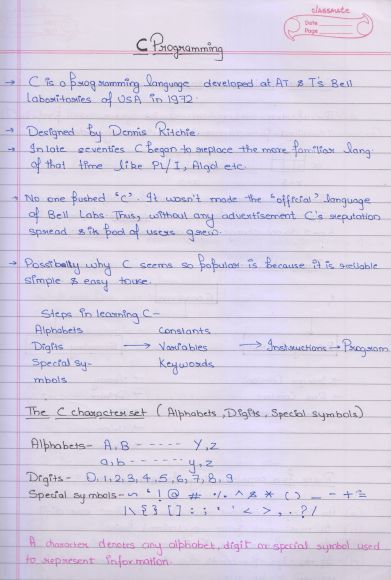 classmate
Date
Page
C Programming
→ C is a programming language developed at AT & T's Bell
laboritories of USA in 1972.
→ Designed by Dennis Ritchie.
→ In late seventies C began to replace the more familiar lang.
of that time like PL/I, Algol etc.
→ No one pushed "C". It wasn't made the "official" language
of Bell Labs. Thus, without any advertisement C's reputation
spread & its pool of users grew.
→ Possibally why C seems so popular is because it is reliable
simple & easy to use.
Steps in learning C-
Alphabets Constants
Digits → Variables → Instructions → Program
Special sy- Keywords
mbols
The C character set ( Alphabets, Digits, Special symbols)
Alphabets - A, B ----- Y, Z
a, b ------ y, z
Digits - 0, 1, 2, 3, 4, 5, 6, 7, 8, 9
Special symbols - ~ ` ! @ # % ^ & * ( ) _ - + =
| \ { } [ ] : ; " ' < > , . ? /
A character denotes any alphabet, digit or special symbol used
to represent information.